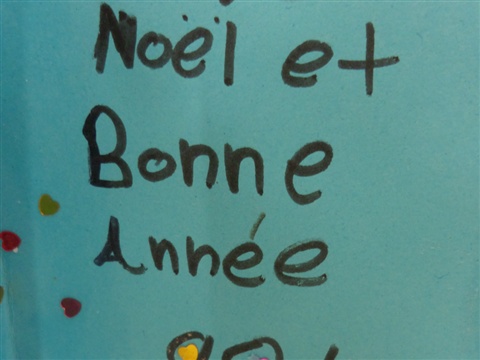 Noël et
Bonne
Année